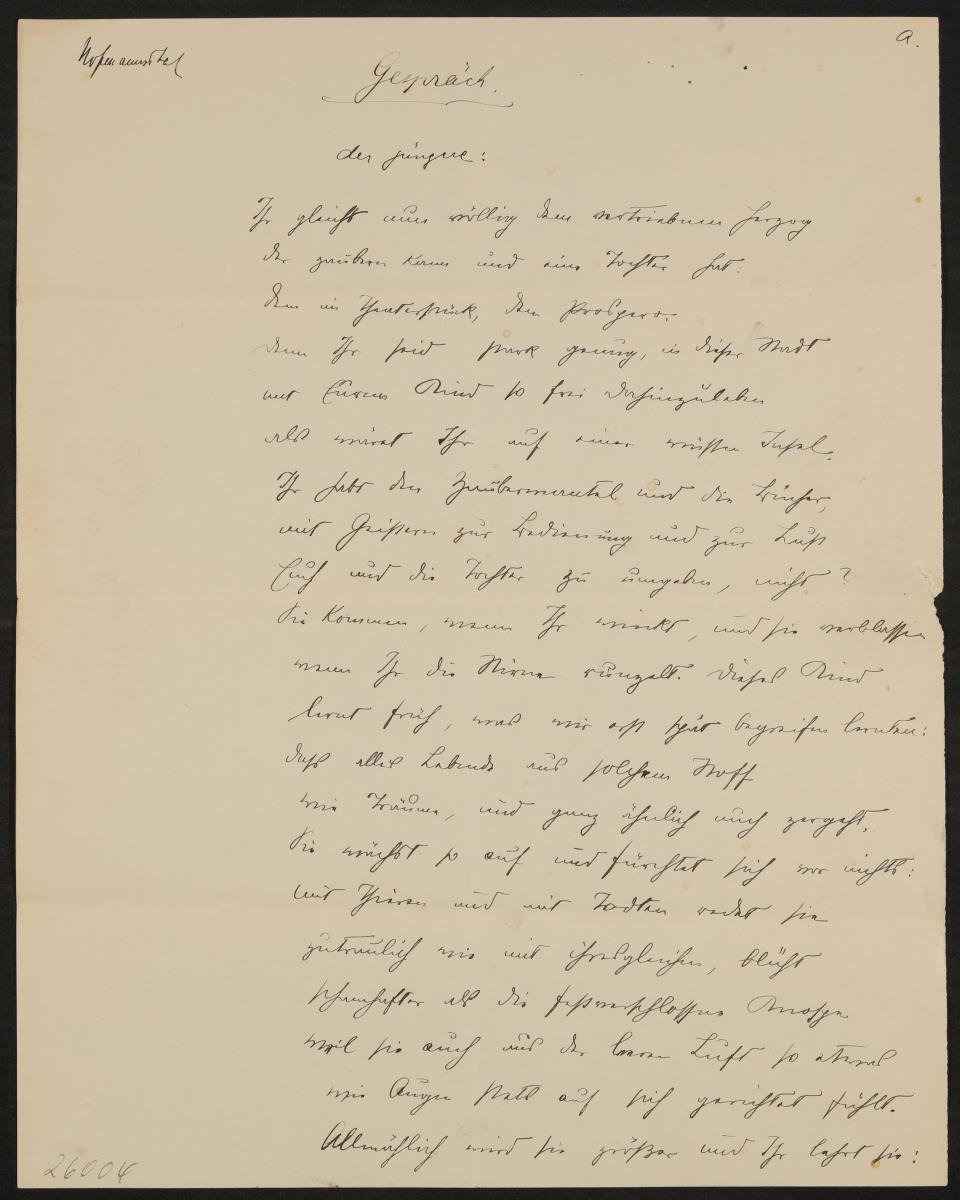 a.
Hofmannsthal
Gespräch.
der jüngere:
Ihr gleicht nun völlig dem vertriebnen Herzog
der zaubern kann und eine Tochter hat:
dem im Theaterstück, dem Prospero.
denn Ihr seid stark genug, in dieser Stadt
mit Eurem Kind so frei dahinzuleben
als wäret Ihr auf einer wüsten Insel.
Ihr habt den Zaubermantel und die Bücher,
mit Geistern zur Bedienung und zur Lust
Euch und die Tochter zu umgeben, nicht?
Sie kommen, wenn Ihr winkt, und sie verblassen
wenn Ihr die Stirne runzelt. Dieses Kind
lernt früh, was wir erst spät begreifen lernten:
dass alles Lebende aus solchem Stoff
wie Träume, und ganz ähnlich auch zergeht.
Sie wächst so auf und fürchtet sich vor nichts:
mit Thieren und mit Todten redet sie
zutraulich wie mit ihresgleichen, blüht
schamhafter als die festverschlossne Knospe
weil sie auch aus der leeren Luft so etwas
wie Augen stets auf sich gerichtet fühlt.
Allmählich wird sie größer und Ihr lehrt sie:
26004